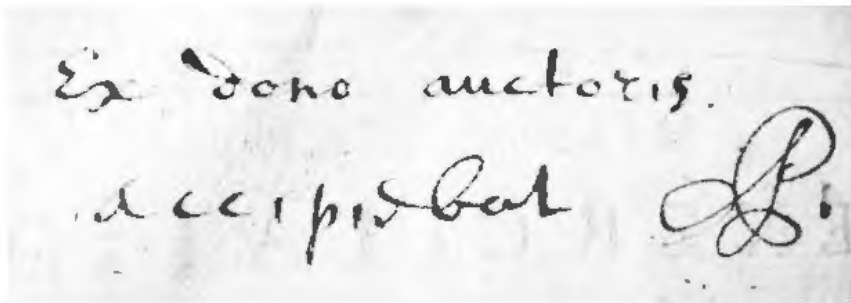 Ex dono auctoris.
accipiebat